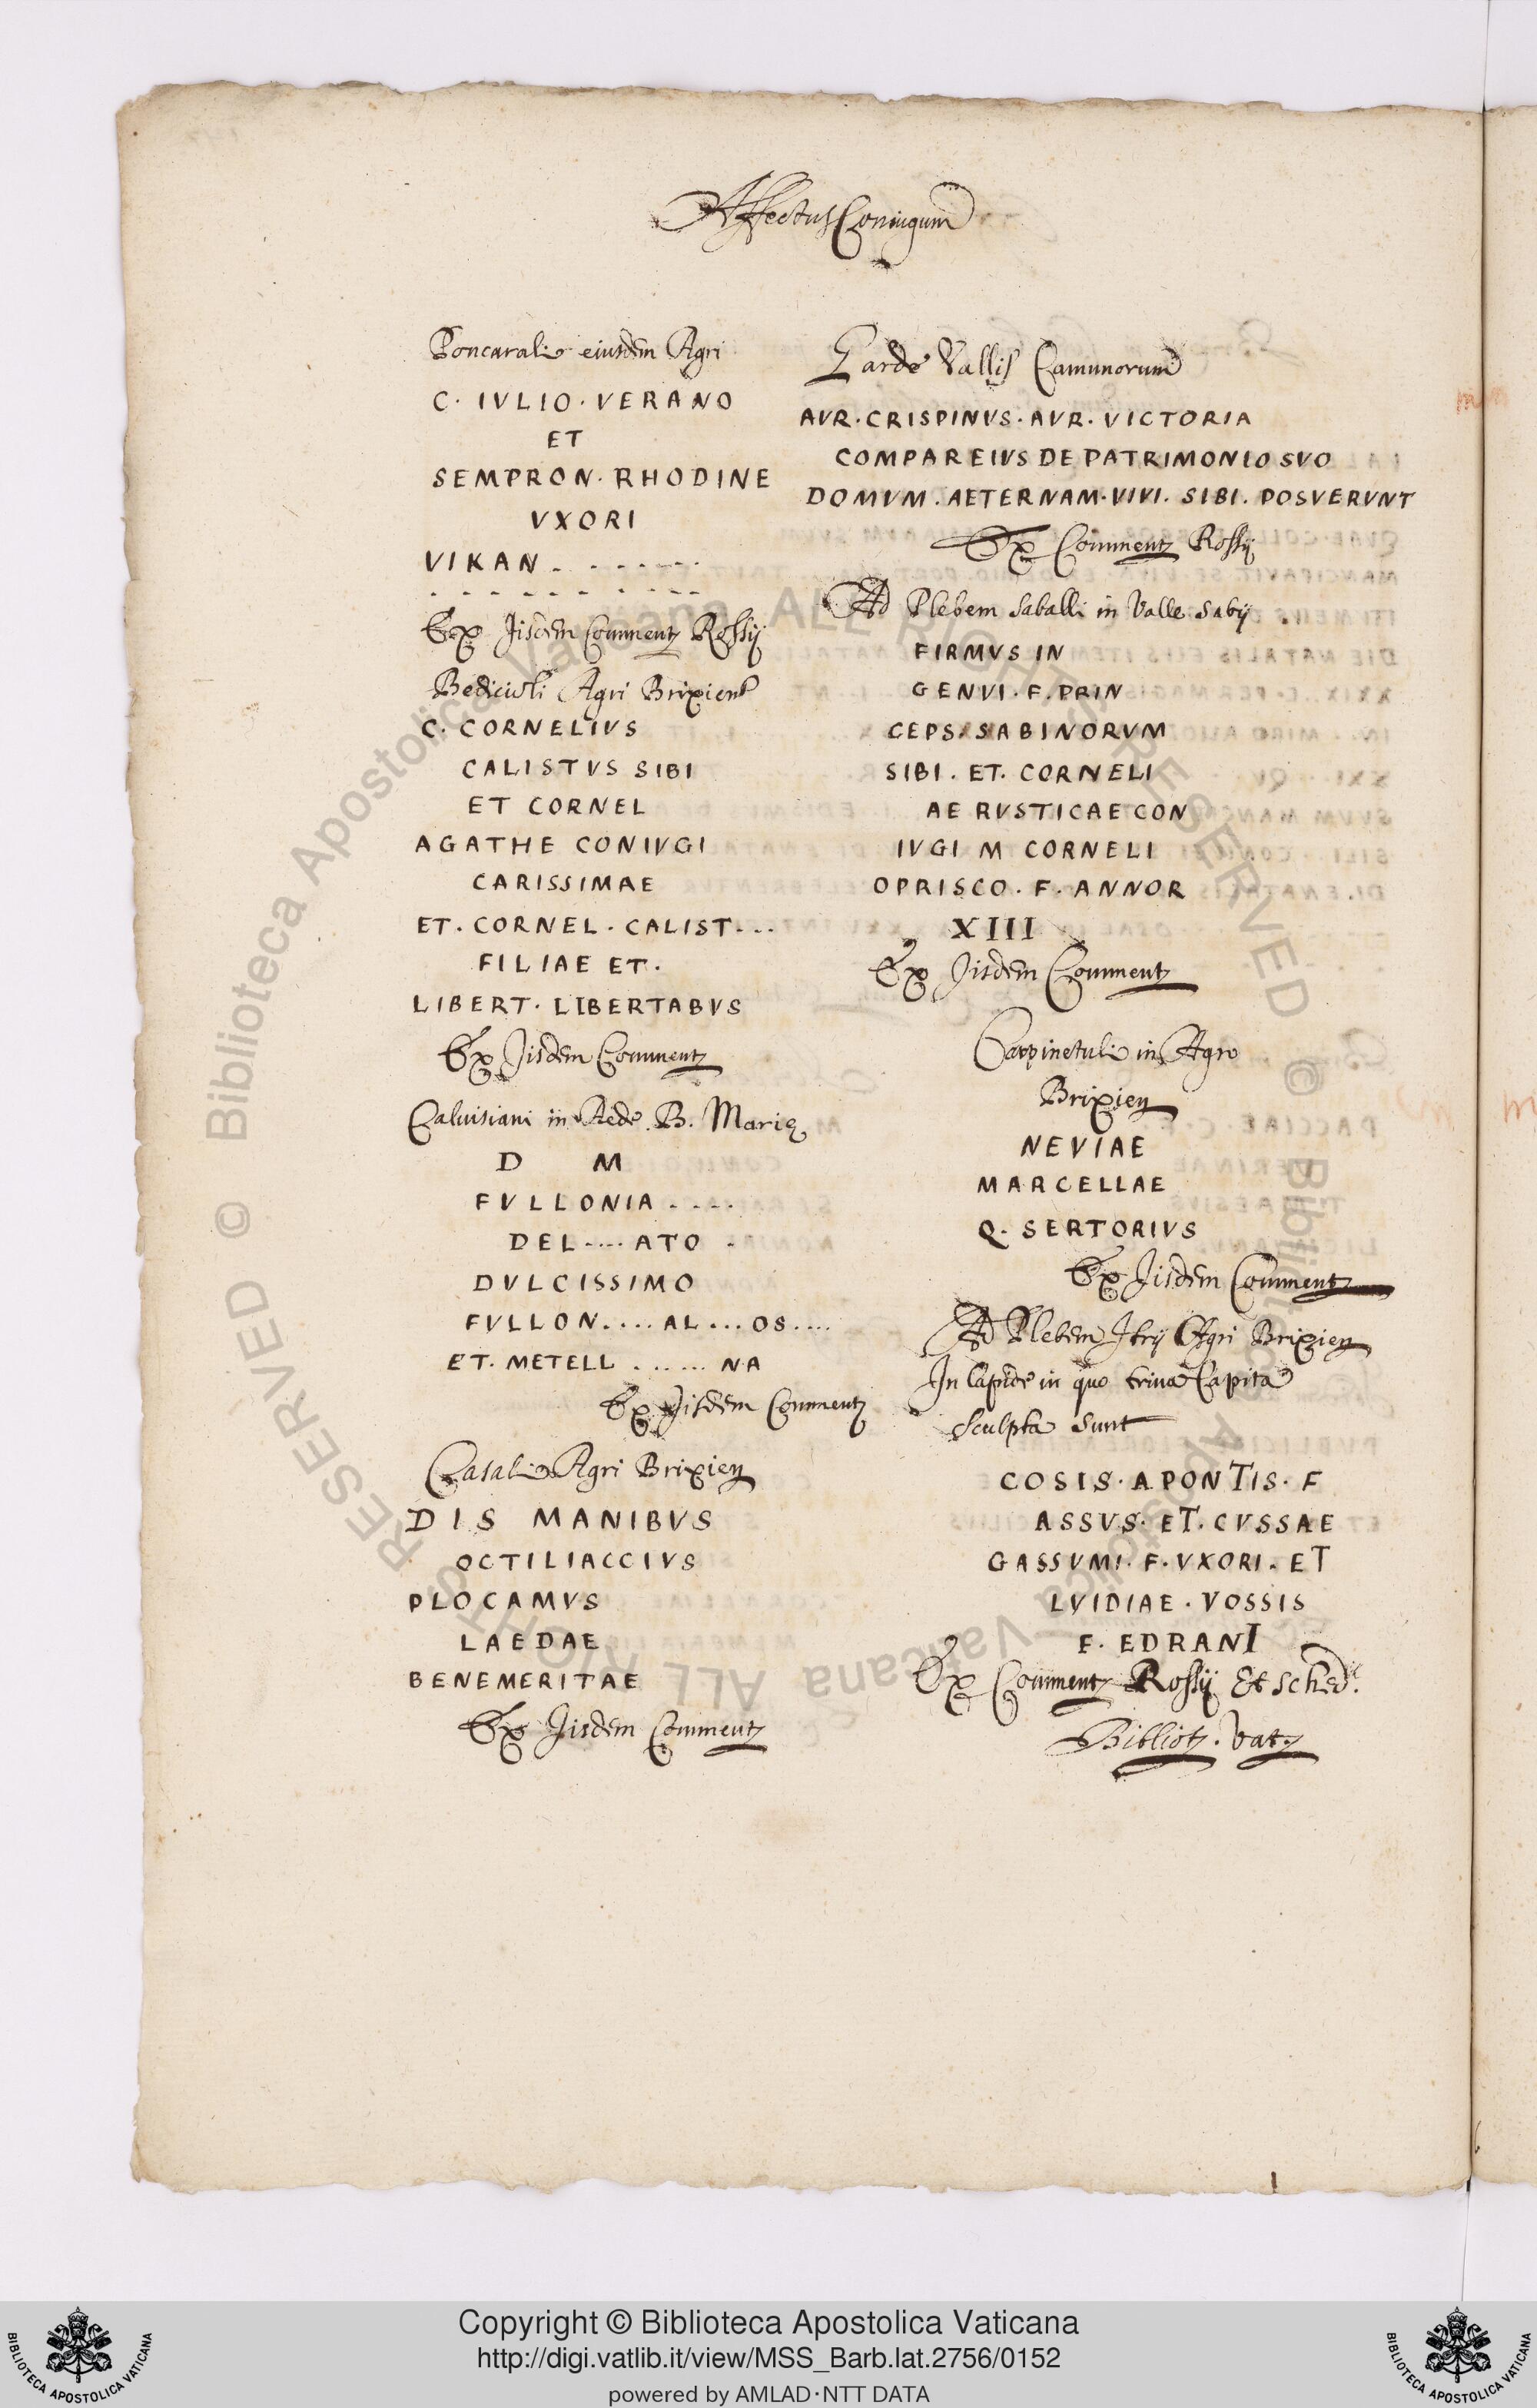 Affectus Coniugum
Poncarali eiusdem Agri
C. IVLIO. VERANO
ET
SEMPRON. RHODINE
VXORI
VIKAN. . . . . . . .
. . . . . . . . . .
Ex Jisdem Comment Rossij
Bedicioli Agri Brixiens
C. CORNELIVS
CALISTVS SIBI
ET CORNEL
AGATHE CONIVGI
CARISSIMAE
ET. CORNEL. CALIST...
FILIAE ET.
LIBERT. LIBERTABVS
Ex Jisdem Comment
Caluisiani in Aede B. Marię
D M
FVLLONIA.....
DEL....ATO .
DVLCISSIMO
FVLLON....AL...OS....
ET. METELL ...... NA
Ex Jisdem Comment
Casali Agri Brixien
DIS MANIBVS
OCTILIACCIVS
PLOCAMVS
LAEDAE
BENEMERITAE
Ex Jisdem Comment
Garde Vallis Camunorum
AVR. CRISPINVS. AVR. VICTORIA
COMPAR EIVS DE PATRIMONIO SVO
DOMVM. AETERNAM. VIVI. SIBI. POSVERVNT
Ex Comment Rossij
Ad Plebem Saballi in Valle Sabij
FIRMVS IN
GENVI. F. PRIN
CEPS SABINORVM
SIBI. ET. CORNELI
AE RVSTICAE CON
IVGI M CORNELI
OPRISCO. F. ANNOR
XIII
Ex Jisdem Comment
Carpinetuli in Agro
Brixien
NEVIAE
MARCELLAE
Q. SERTORIVS
Ex Jisdem Comment
Ad Plebem Agri Brixien
In Lapide in quo trina Capita
Sculpta Sunt
COSIS. APONTIS. F
ASSVS. ET. CVSSAE
GASSVMI. F. VXORI. ET
LVIDIAE. VOSSIS
F. EDRANI
Ex Comment Rossij Et sched.
Bibliot. Vat.
© Biblioteca Apostolica Vaticana ALL RIGHTS RESERVED
© Biblioteca Apostolica Vaticana ALL RIGHTS RESERVED
Copyright © Biblioteca Apostolica Vaticana
http://digi.vatlib.it/view/MSS_Barb.lat.2756/0152
powered by AMLAD·NTT DATA
BIBLIOTECA APOSTOLICA VATICANA
BIBLIOTECA APOSTOLICA VATICANA